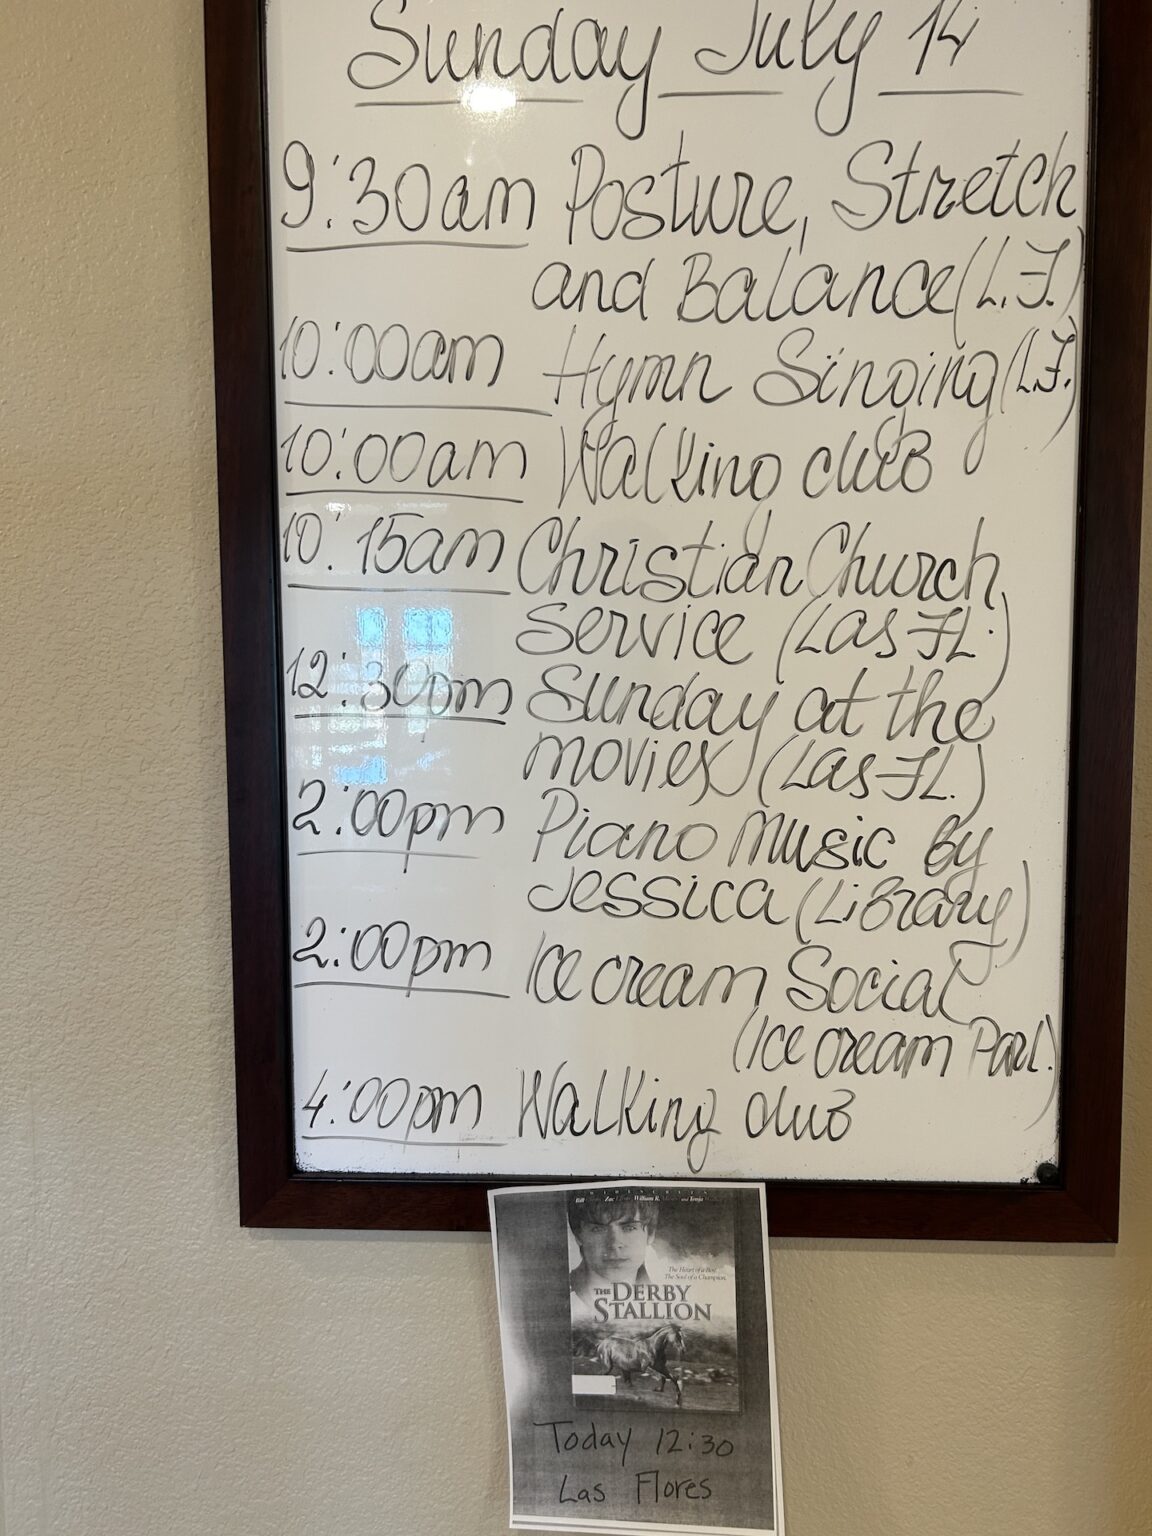 Sunday July 14
9:30am Posture, Stretch
and Balance (L.F.)
10:00am Hymn Singing (L.F.)
10:00am Walking club
10:15am Christian Church
Service (Las FL.)
12:30pm Sunday at the
movies (Las FL.)
2:00pm Piano Music by
Jessica (Library)
2:00pm Ice cream Social
(Ice cream Parl.)
4:00pm Walking club
The Heart of a Boy.
The Soul of a Champion.
THE DERBY
STALLION
Today 12:30
Las Flores